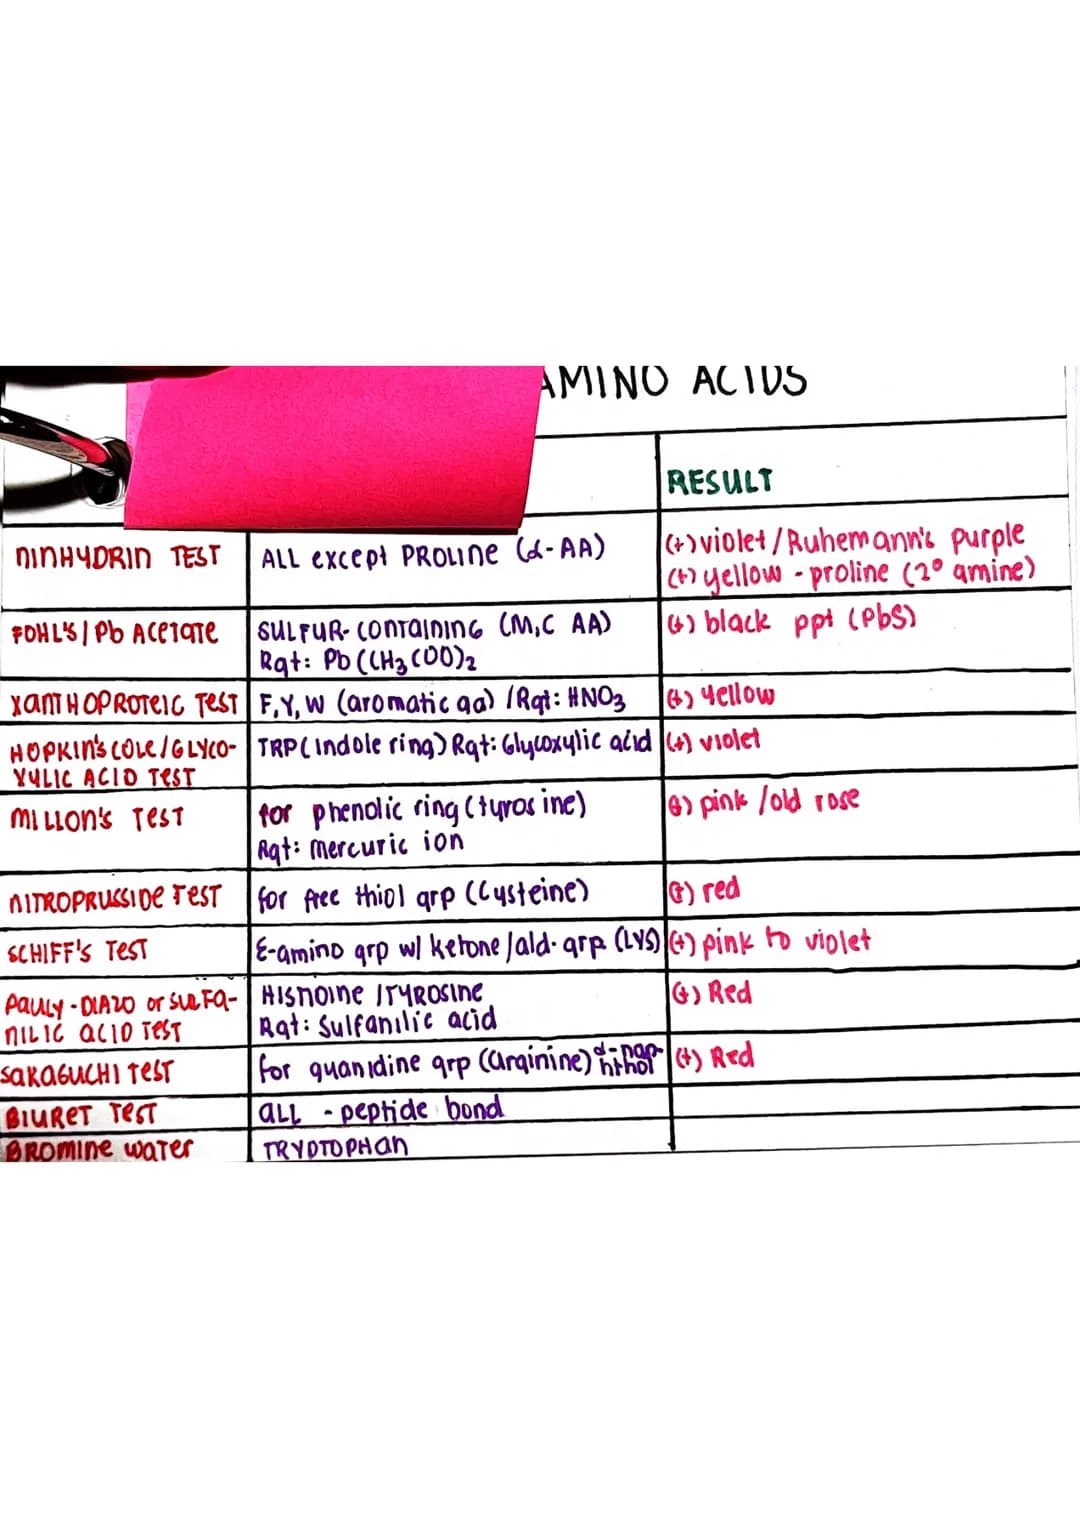 AMINO ACIDS
RESULT
NINHYDRIN TEST
ALL except PROLINE (α-AA)
(+) violet / Ruhemann's purple
(+) yellow - proline (2° amine)
FOHL'S / Pb ACETATE
SULFUR-CONTAINING (M,C AA)
Rgt: Pb(CH3COO)2
(+) black ppt (PbS)
XANTHOPROTEIC TEST
F,Y,W (aromatic aa) / Rgt: HNO3
(+) yellow
HOPKIN'S COLE / GLYCO-
XYLIC ACID TEST
TRP (indole ring) Rgt: Glycoxylic acid
(+) violet
MILLON'S TEST
for phenolic ring (tyrosine)
Rgt: mercuric ion
(+) pink / old rose
NITROPRUSSIDE TEST
for free thiol grp (Cysteine)
(+) red
SCHIFF'S TEST
ε-amino grp w/ ketone/ald. grp (LYS)
(+) pink to violet
PAULY-DIAZO or SULFA-
NILIC ACID TEST
HISTIDINE / TYROSINE
Rgt: Sulfanilic acid
(+) Red
SAKAGUCHI TEST
for guanidine grp (Arginine) α-nap-
hthol
(+) Red
BIURET TEST
ALL - peptide bond
BROMINE WATER
TRYPTOPHAN